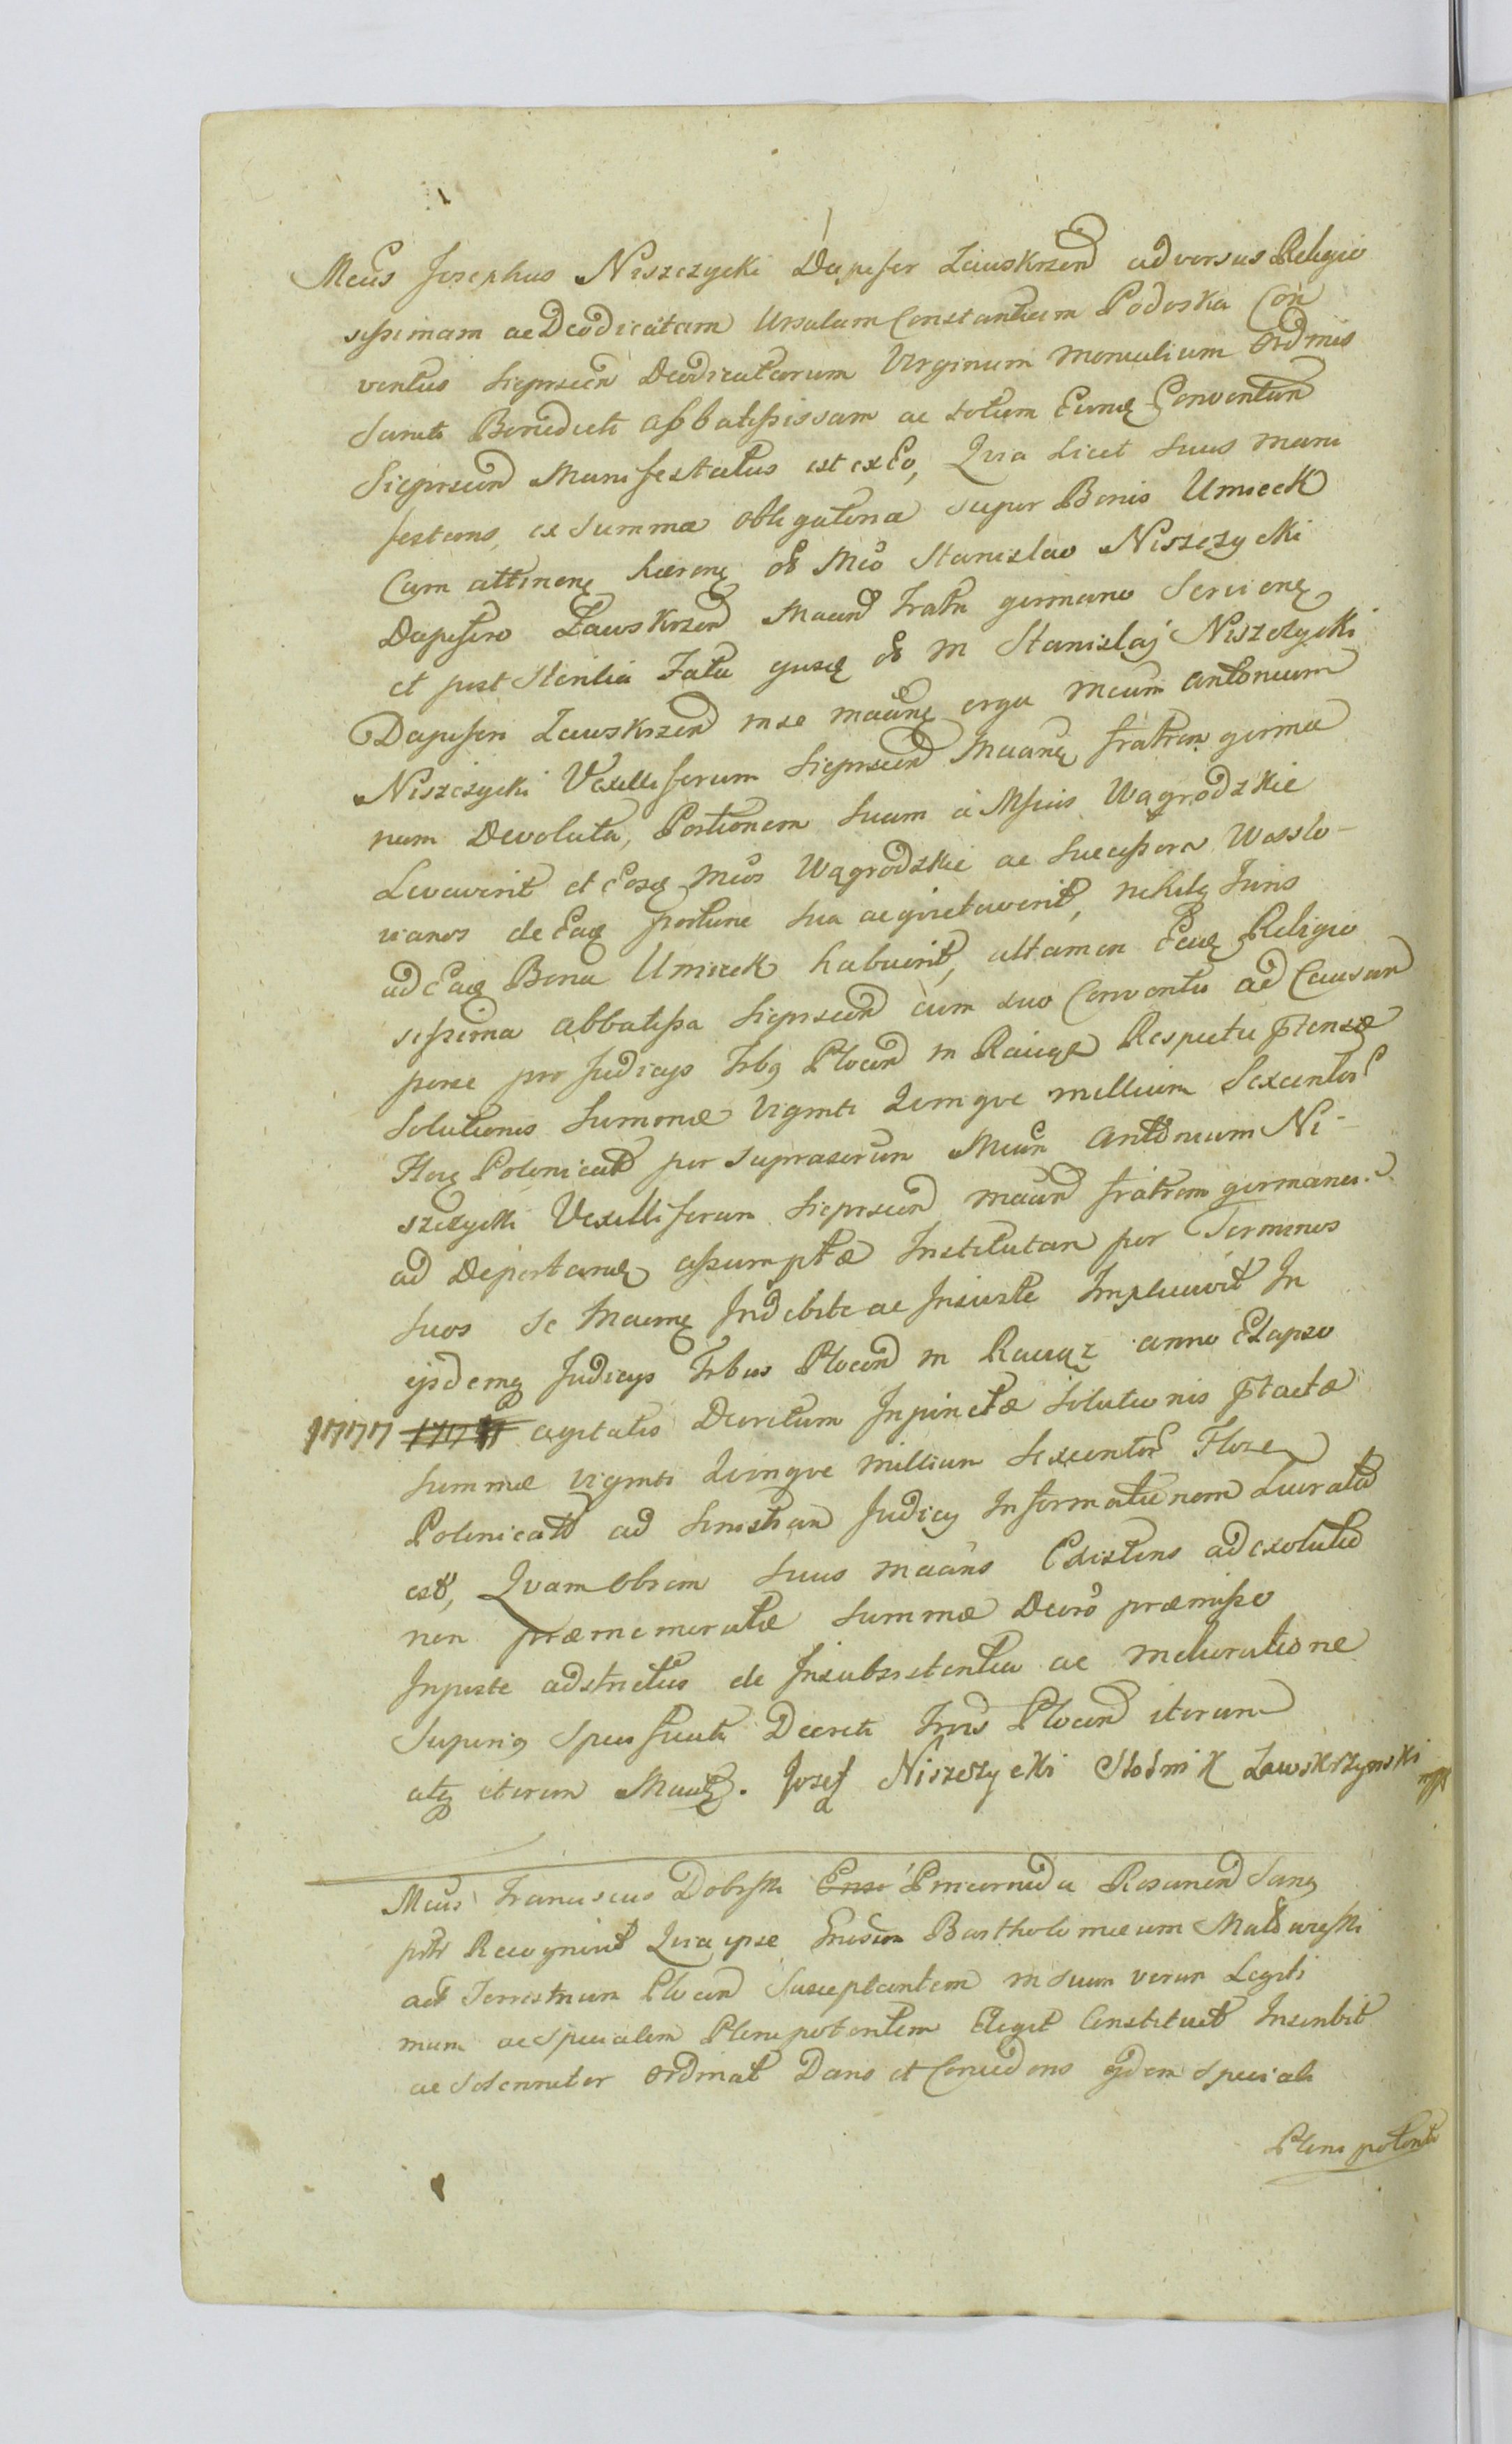 Mcus Josephus Niszczycki Dapifer Zauskrzen adversus Religio
sissimam ac Deodicatam Ursulam Constantiam Podoska Con
ventus Sieprscen Deodicatarum Virginum Monialium Ordinis
Sancti Benedicti Abbatississam ac totum Eiusq Conventum
Sieprscen Manifestatus est ex Eo, Quia licet Suus Mani
festans, ex Summa obligatoria super Bonis Umieck
Cum attinenę haerenę olim Mco Stanislao Niszczycki
Dapifero Zauskrzen Maand Fratri germano Servienę
et post Sterilia Fata ejusq olim M Stanislaj Niszczycki
Dapiferi Zauskrzen in se maanę erga Mcum Antonium
Niszczycki Vexilliferum Sieprscen Maanę fratrem germa
num Devoluta, Portionem Suam a Mfcis Wągrodzkie
Levaverit et Eosq Mcos Wągrodzkie ac Successores Wasslo-
vianos de Eaq portione sua acquietaverit, nihilq Juris
ad Eaq Bona Umieck habuerit, attamen Eaq Religio
sissima Abbatissa Sieprscen cum suo Conventu ad Causam
porse pro Judicys Trbq Plocen in Raciąz Respectu Ptensæ
Solutionis Summæ Viginti Quinque millium Sexcentor
Flor Polonicat per suprascrtum Mcum Antonium Ni-
szczycki Vexilliferum Sieprscen maand fratrem germanu.
ad Deportand assumptæ Institutam per Terminos
suos Se Maanę Indebite ac Injuste Implicavit In
ejsdemq Judicys Trbus Plocen in Raciąz anno Elapso
1777 1771 agitatis Decretum Injunctæ Solutionis Ptactæ
Summæ viginti Quinque millium Sexcentor Flore
Polonicatt ad Sinistram Judicy Informationem Lucrata
est, Quam obrem Suus maans Existens ad exolutio
nem præmemoratæ Summæ Decro præmisso
Injuste adstrictus de Insubsistentia ac melioratione
Superiq Specificati Decreti Trris Plocen iterum
atq iterum Mautq. Jozef Niszczycki Stolnik Zawskrzynski mpp
Mcus Franciscus Dobrski Ense Pincernida Rosanen Sanq
pntr Recognovit Quia ipse Gnosum Bartholomeum Maldureski
act Terrestrium Plocen Susceptantem in suum verum Legiti
mum ac specialem Plenipotentem Elegit Constituit Inscribit
ac solenniter ordinat Dans et Concedens ejdem speciali
Plenipotenti